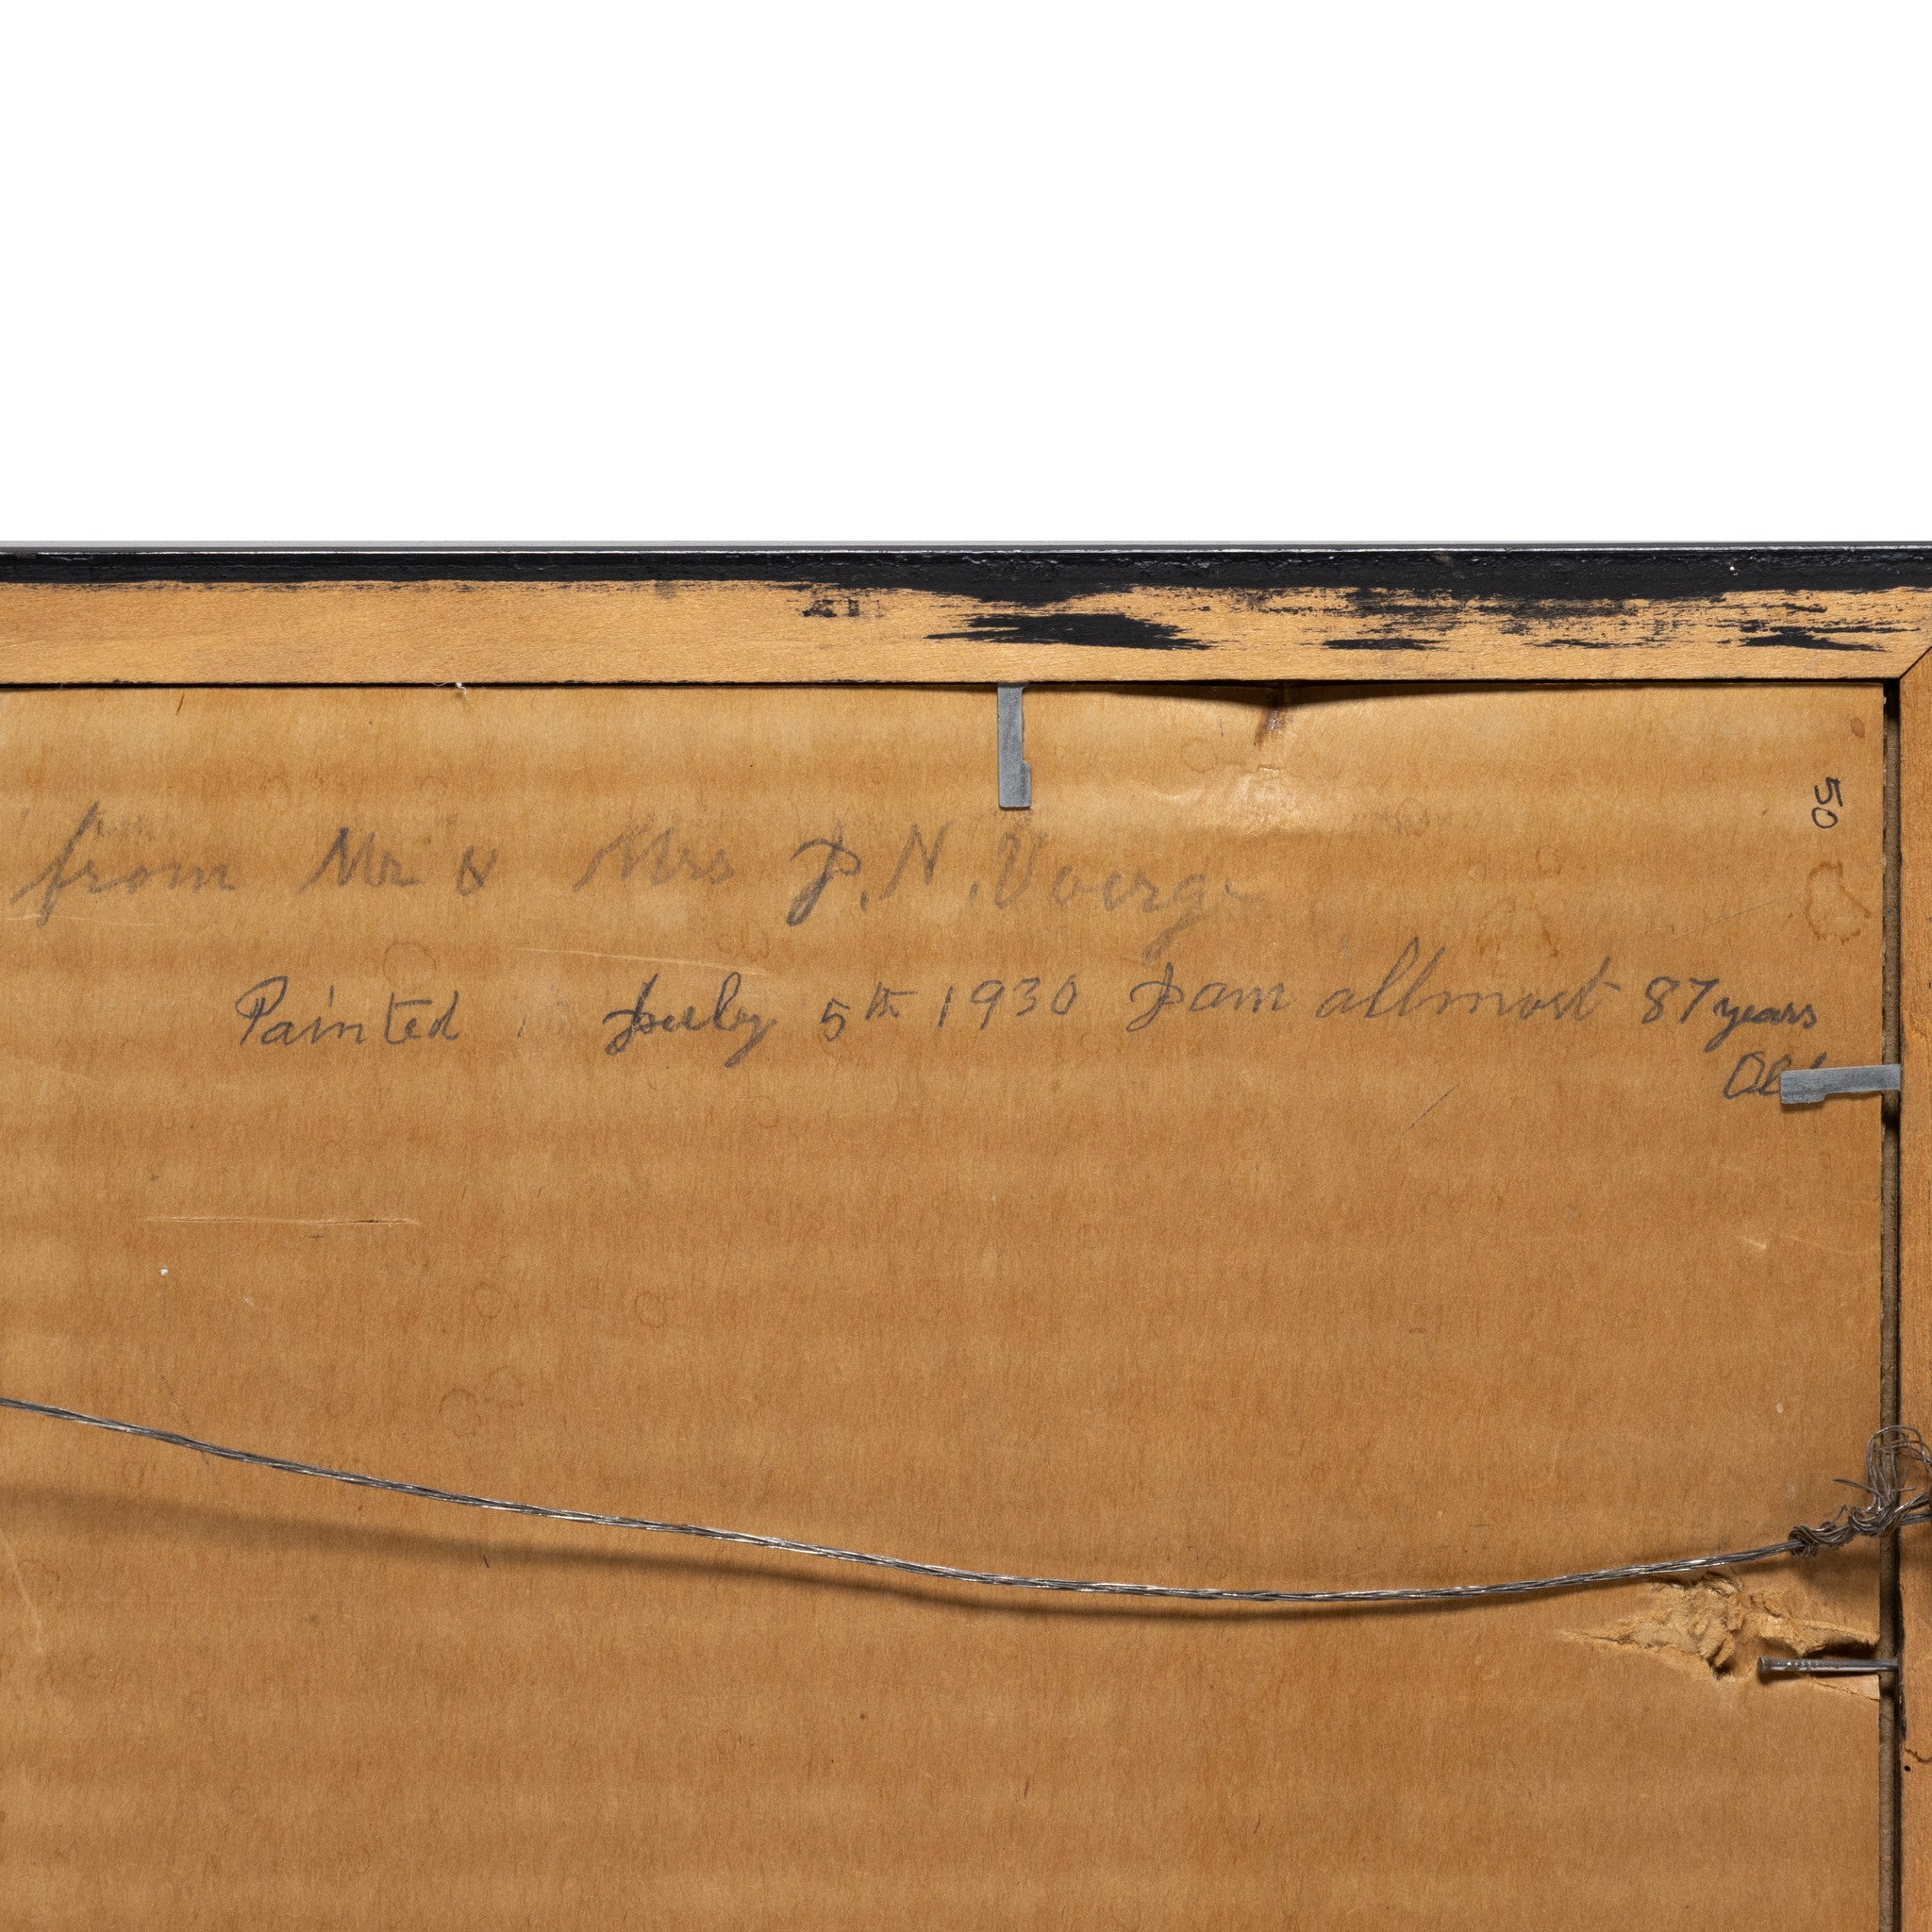 50
from Mr & Mrs J. N. Voerge
Painted July 5th 1930 I am allmost 87 years
Old